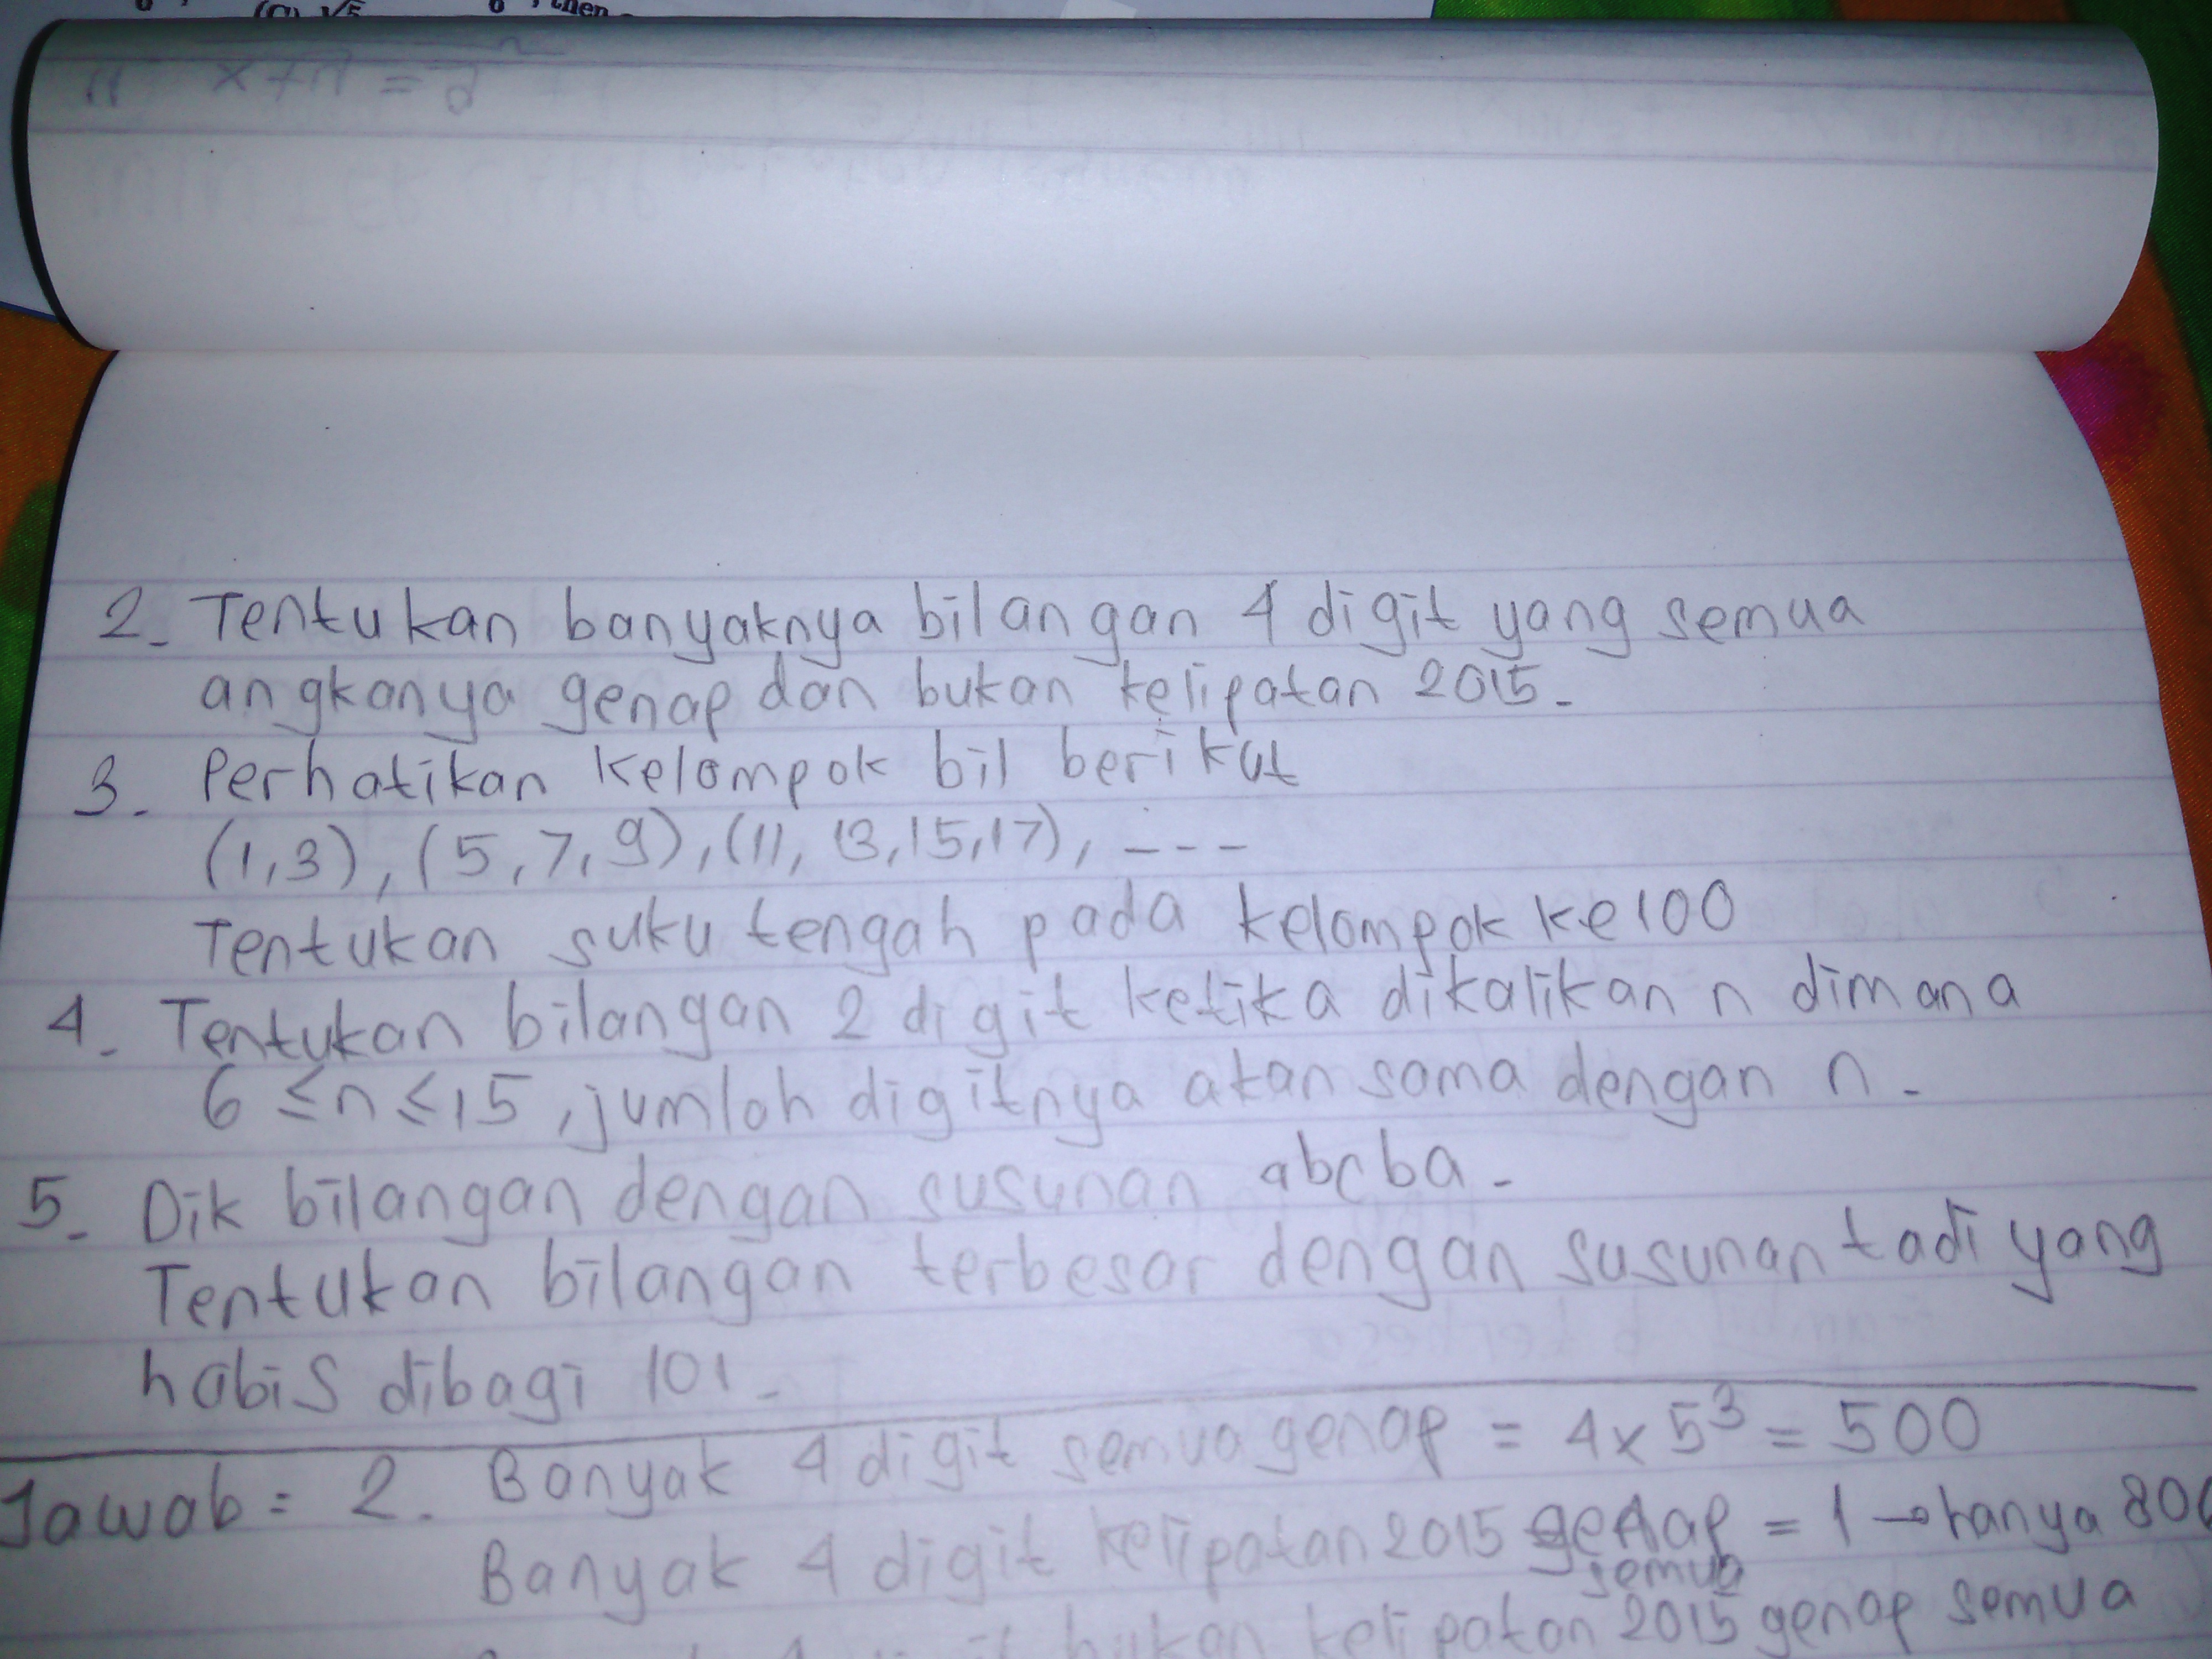 (C) √5
, then
2. Tentukan banyaknya bilangan 4 digit yang semua
angkanya genap dan bukan kelipatan 2015.
3. Perhatikan kelompok bil berikut
(1,3), (5,7,9), (11, 13,15,17), ---
Tentukan suku tengah pada kelompok ke 100
4. Tentukan bilangan 2 digit ketika dikalikan n dimana
6 ≤ n ≤ 15, jumlah digitnya akan sama dengan n.
5. Dik bilangan dengan susunan abcba.
Tentukan bilangan terbesar dengan susunan tadi yang
habis dibagi 101.
Jawab = 2. Banyak 4 digit semua genap = 4 x 5³ = 500
Banyak 4 digit kelipatan 2015 genap semua = 1 → hanya 806
bukan kelipatan 2015 genap semua